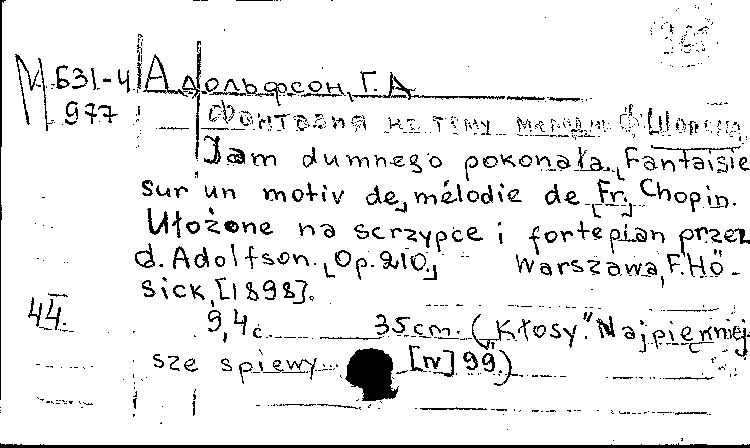 365
М Б31-4 Адольфсон, Г. А
977 Фантазия на тему мелодии Ф. Шопена
Jam dumnego pokonała. Fantaisie
sur un motiv de mélodie de [Fr.] Chopin.
Ułożone na scrzypce i fortepian przez
d. Adolfson. [Op. 210.] Warszawa, F. Hö-
sick, [1898].
44. 9, 4 с. 35 cm. ("Kłosy". Najpiękniej-
sze spiewy [IV] 99.)